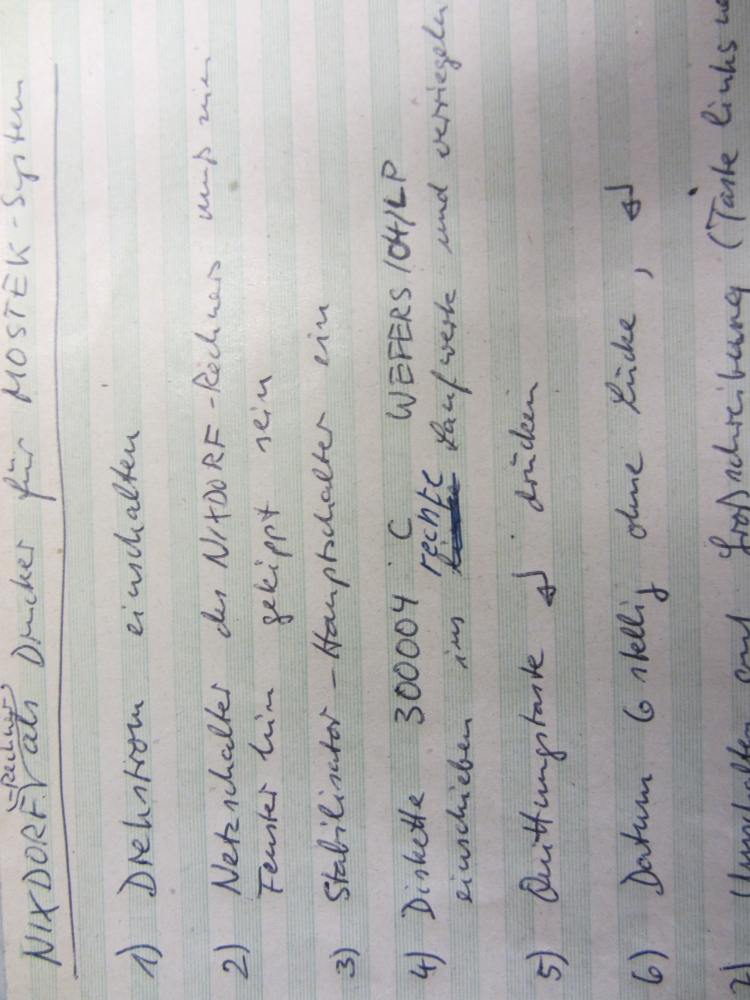 NIXDORF-Rechner als Drucker für MOSTEK-System
1) Drehstrom einschalten
2) Netzschalter des NIXDORF-Rechners muß zum
Fenster hin gekippt sein
3) Stabilisator-Hauptschalter ein
4) Diskette 300004 C WEFERS/04/LP
einschieben ins rechte Laufwerk und verriegeln
5) Quittungstaste ↲ drücken
6) Datum 6 stellig ohne Lücke, ↲
7) Umschalten auf Großschreibung (Taste links